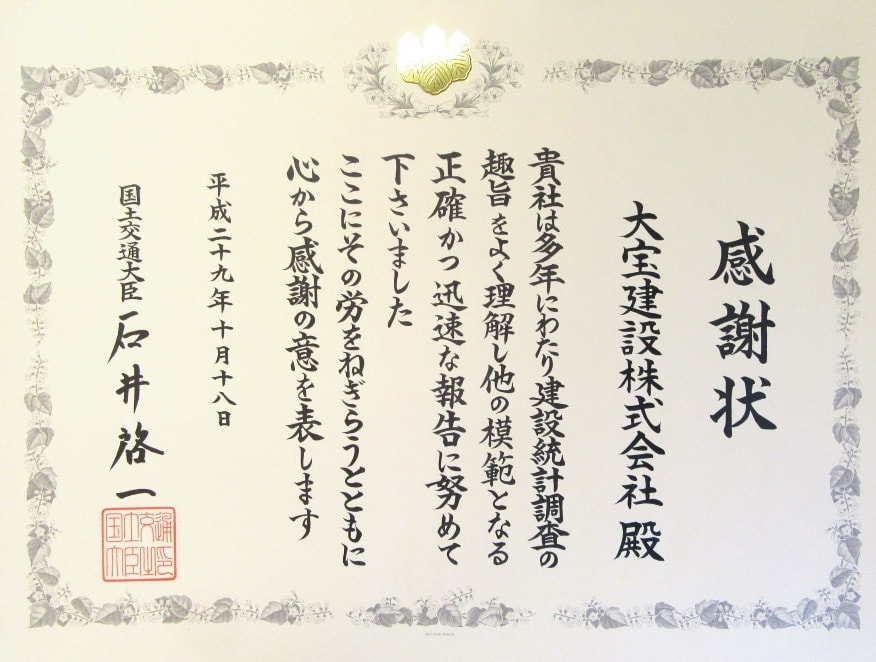 感謝状
大宝建設株式会社 殿
貴社は多年にわたり建設統計調査の
趣旨をよく理解し他の模範となる
正確かつ迅速な報告に努めて
下さいました
ここにその労をねぎらうとともに
心から感謝の意を表します
平成二十九年十月十八日
国土交通大臣 石井啓一